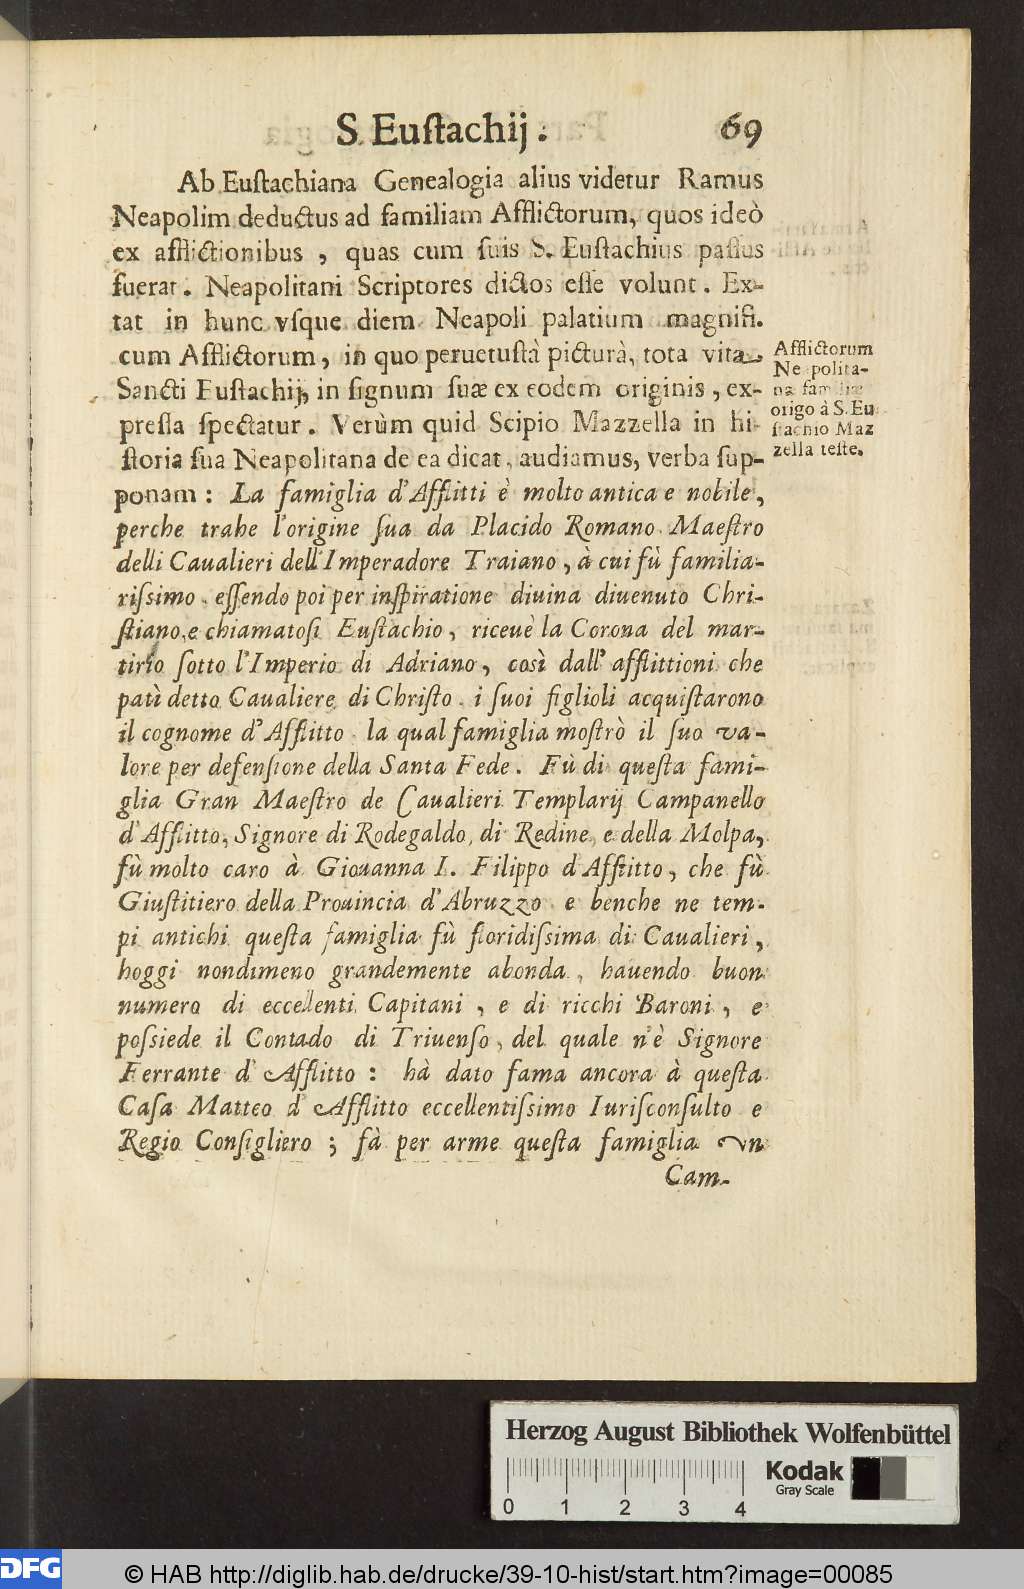 S. Euſtachij. 69
Ab Euſtachiana Genealogia alius videtur Ramus
Neapolim deductus ad familiam Afflictorum, quos ideò
ex afflictionibus, quas cum ſuis S. Euſtachius paſſus
fuerat. Neapolitani Scriptores dictos eſſe volunt. Ex-
tat in hunc vſque diem Neapoli palatium magnifi.
cum Afflictorum, in quo peruetuſtà picturà, tota vita
Sancti Euſtachij, in ſignum ſuæ ex eodem originis, ex-
preſſa ſpectatur. Verùm quid Scipio Mazzella in hi-
ſtoria ſua Neapolitana de ea dicat, audiamus, verba ſup-
ponam: La famiglia d'Afflitti è molto antica e nobile,
perche trahe l'origine ſua da Placido Romano Maeſtro
delli Caualieri dell'Imperadore Traiano, à cui fù familia-
riſsimo. eſſendo poi per inſpiratione diuina diuenuto Chri-
ſtiano, e chiamatoſi Euſtachio, riceuè la Corona del mar-
tirio ſotto l'Imperio di Adriano, così dall' afflittioni che
patì detto Caualiere di Chriſto. i ſuoi figlioli acquiſtarono
il cognome d'Afflitto. la qual famiglia moſtrò il ſuo va-
lore per defenſione della Santa Fede. Fù di queſta fami-
glia Gran Maeſtro de Caualieri Templarij Campanello
d'Afflitto, Signore di Rodegaldo, di Redine, e della Molpa,
fù molto caro à Giouanna I. Filippo d'Afflitto, che fù
Giuſtitiero della Prouincia d'Abruzzo. e benche ne tem-
pi antichi queſta famiglia fù floridiſsima di Caualieri,
hoggi nondimeno grandemente abonda, hauendo buon
numero di eccellenti Capitani, e di ricchi Baroni, e
poſsiede il Contado di Triuenſo, del quale n'è Signore
Ferrante d'Afflitto: hà dato fama ancora à queſta
Caſa Matteo d'Afflitto eccellentiſsimo Iuriſconſulto e
Regio Conſigliero; fà per arme queſta famiglia vn
Cam-
Afflictorum
Neapolita-
na familiæ
origo à S. Eu
ſtachio Maz
zella teſte.
Herzog August Bibliothek Wolfenbüttel
Kodak
Gray Scale
0 1 2 3 4
DFG © HAB http://diglib.hab.de/drucke/39-10-hist/start.htm?image=00085